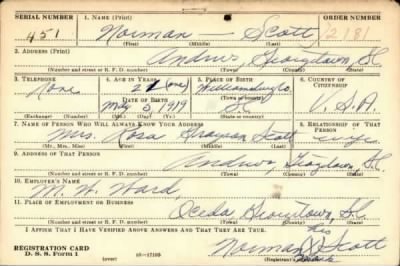 SERIAL NUMBER 1. NAME (Print) ORDER NUMBER
451 Norman — Scott 2181
(First) (Middle) (Last)
2. ADDRESS (Print)
Andrews Georgetown S.C.
(Number and street or R. F. D. number) (Town) (County) (State)
3. TELEPHONE 4. AGE IN YEARS 5. PLACE OF BIRTH 6. COUNTRY OF CITIZENSHIP
None 21 (one) Williamsburg Co.
DATE OF BIRTH (Town or county)
May 5 1919 S.C. U.S.A.
(Exchange) (Number) (Mo.) (Day) (Yr.) (State or country)
7. NAME OF PERSON WHO WILL ALWAYS KNOW YOUR ADDRESS 8. RELATIONSHIP OF THAT PERSON
Mrs. Rosa Scott wife
(Mr., Mrs., Miss) (First) (Middle) (Last)
9. ADDRESS OF THAT PERSON
Andrews, Georgetown, S.C.
(Number and street or R. F. D. number) (Town) (County) (State)
10. EMPLOYER'S NAME
M. W. Ward,
11. PLACE OF EMPLOYMENT OR BUSINESS
Georgetown, S.C.
(Number and street or R. F. D. number) (Town) (County) (State)
I AFFIRM THAT I HAVE VERIFIED ABOVE ANSWERS AND THAT THEY ARE TRUE.
his
REGISTRATION CARD Norman X Scott
D. S. S. Form 1 (over) 16—17105 mark